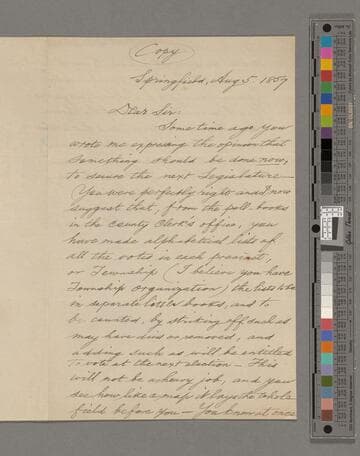 Copy
Springfield, Aug 5. 1859
Dear Sir:
Some time ago you
wrote me expressing the opinion that
something should be done now,
to secure the next Legislature—
You were perfectly right and now
suggest that, from the poll-books
in the County Clerk's office, you
have made alphabetical lists of
all the votes in each precinct,
or Township (I believe you have
Township organization) the lists to be
in separate letter books, and to
be corrected, by striking off such as
may have died or removed, and
adding such as will be entitled
to vote at the next election — This
will not be a heavy job, and you
see how like a map it lays the whole
field before you — You know at once